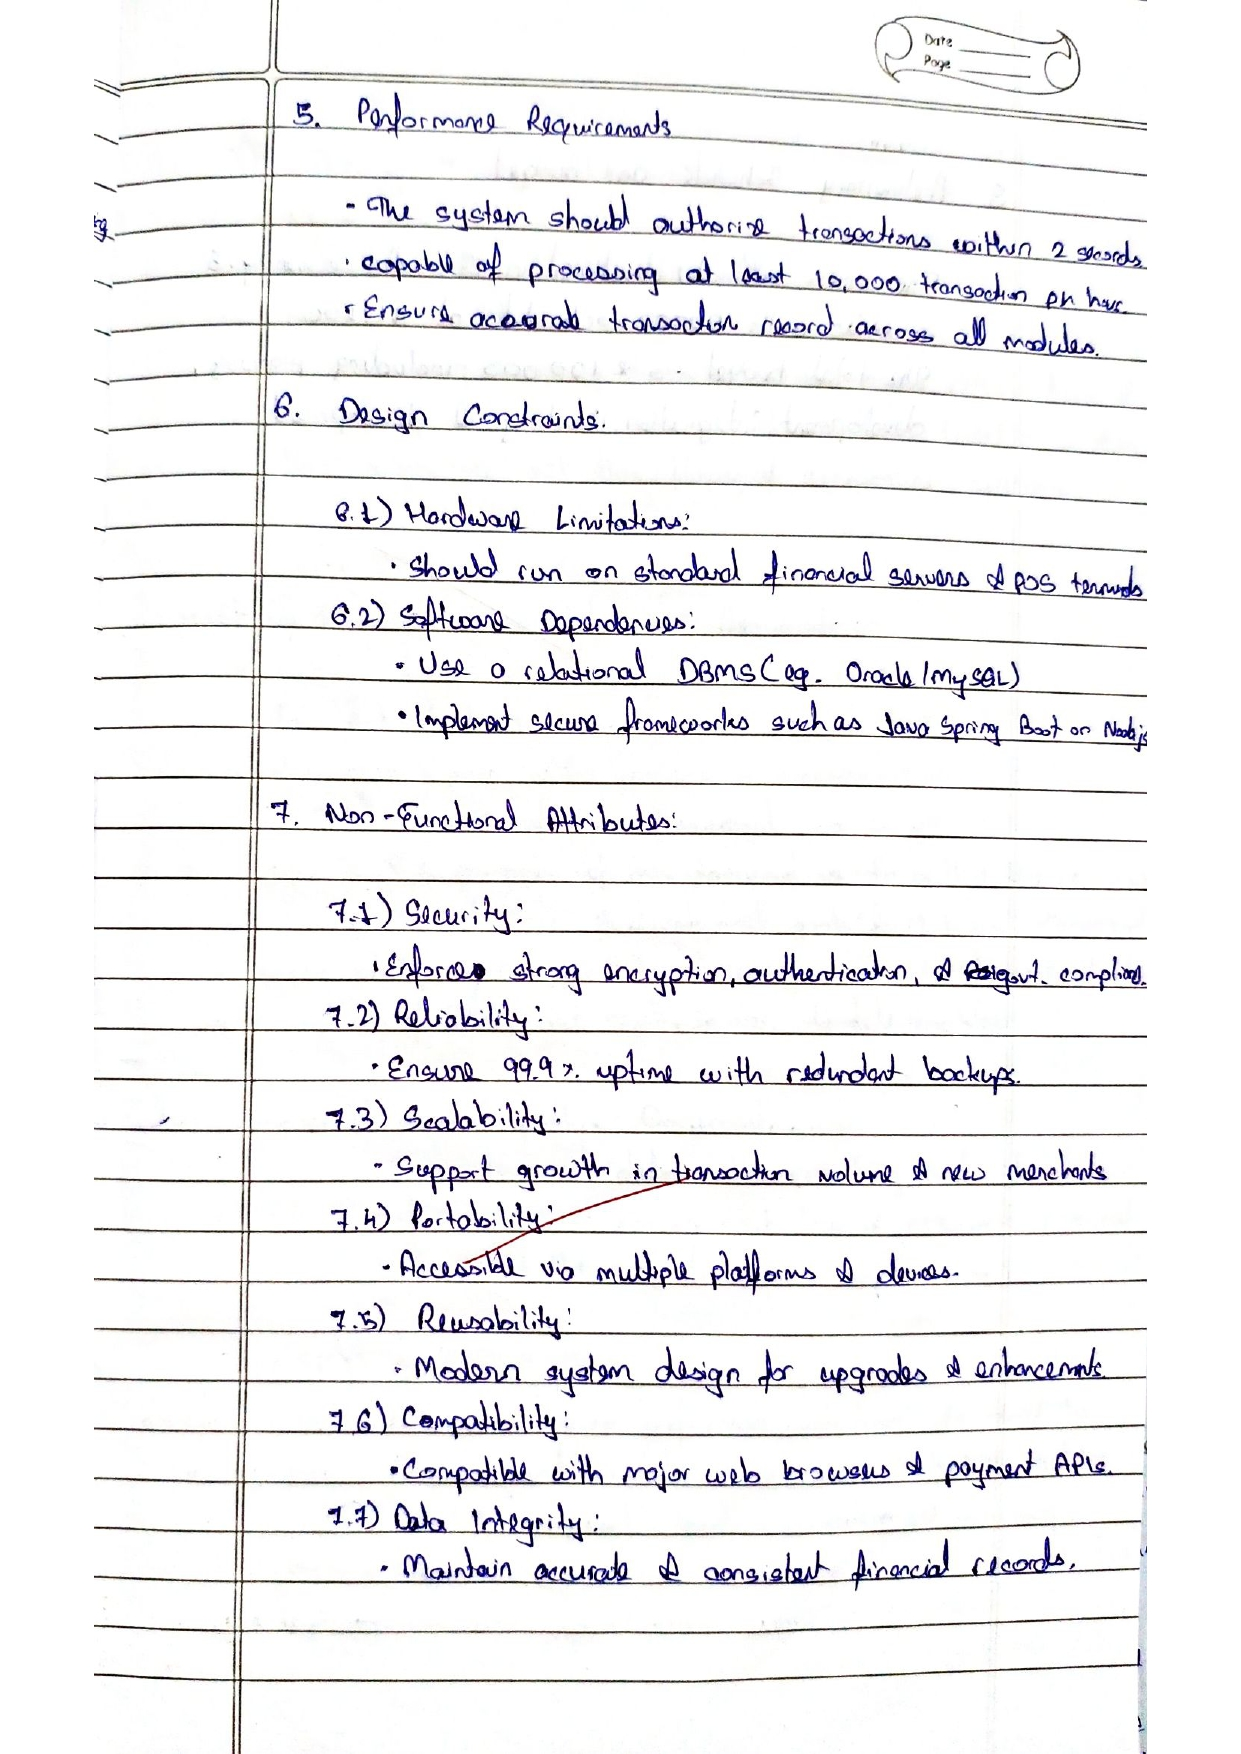 Date
Page
5. Performance Requirements
- The system should authorize transactions within 2 seconds
· capable of processing at least 10,000 transaction per hour.
· Ensure accurate transaction record across all modules.
6. Design Constraints.
6.1) Hardware Limitations:
· Should run on standard financial servers & POS terminals
6.2) Software Dependencies:
· Use a relational DBMS (eg. Oracle/MySQL)
· Implement secure frameworks such as Java Spring Boot or Nodejs
7. Non-Functional Attributes:
7.1) Security:
· Enforce strong encryption, authentication, & govt. compliance.
7.2) Reliability:
· Ensure 99.9% uptime with redundant backups.
7.3) Scalability:
- Support growth in transaction volume & new merchants
7.4) Portability:
· Accessible via multiple platforms & devices.
7.5) Reusability:
· Modern system design for upgrades & enhancements.
7.6) Compatibility:
· Compatible with major web browsers & payment APIs.
7.7) Data Integrity:
· Maintain accurate & consistent financial records.